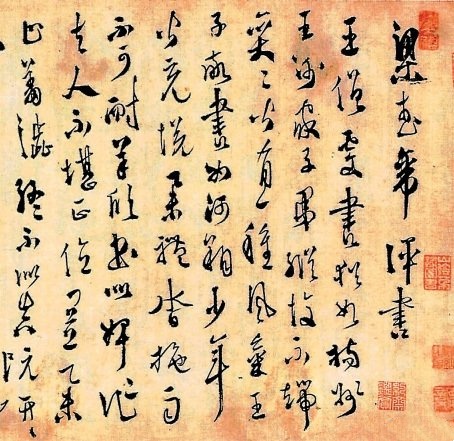 梁武帝評書
王僧虔書猶如揚州
王謝家子弟縱復不端
奕〻皆有一種風氣王
子敬書如河朔少年
皆充悦舉體沓拖而
不可耐羊欣書似婢作
夫人不堪正位
止羞澀終不似真阮研